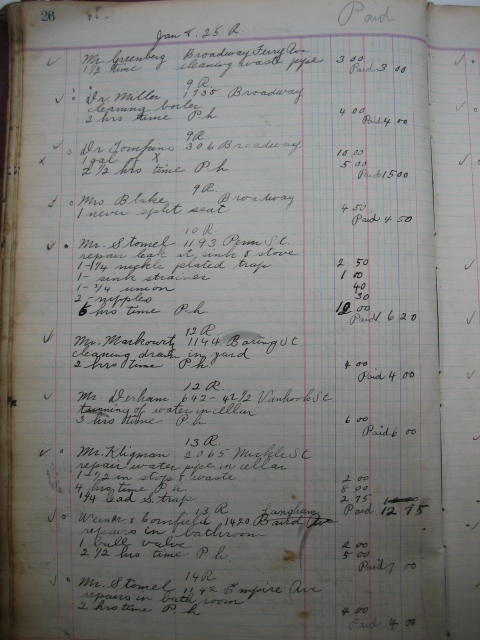 26
Paid
Jan 8. 25 R.
Mr Greenberg Broadway Ferry Ave
1 1/2 time cleaning waste pipe 3 00
Paid 3 00
9 R.
Dr. Miller 1735 Broadway
cleaning boiler
2 hrs time P.h 4 00
Paid 4 00
9 R.
Dr. Tompkins 306 Broadway
1 gal of X 10 00
2 1/2 hrs time P.h 5 00
Paid 15 00
9 R.
Mrs Blake Broadway
1 never split seat 4 50
Paid 4 50
10 R.
Mr. Stomel 1193 Penn St.
repair leak at sink & stove
1-1 1/4 nickle plated trap 2 50
1- sink strainer 1 00
1- 3/4 union 40
2- nipples 30
6 hrs time P.h 12 00
Paid 16 20
12 R.
Mr. Markowitz 1144 Baring St
cleaning drain in yard
2 hrs time P.h. 4 00
Paid 4 00
12 R.
Mr. Derham 642-42 1/2 Vanhook St
of water in cellar
3 hrs time P.h 6 00
Paid 6 00
13 R.
Mr. Kligman 2065 Mickle St
repair water pipe in cellar
1-1/2 in stop & waste 2 00
4 hrs time P.h 8 00
1 1/4 lead S trap 2 75
Paid 12 75
13 R Langham
& Cornfield 1420 Baird Ave
repairs in bathroom
1 ball valve 2 00
2 1/2 hrs time P.h. 5 00
Paid 7 00
14 R
Mr. Stomel Empire Ave
repairs in bath room
2 hrs time P.h 4 00
Paid 4 00